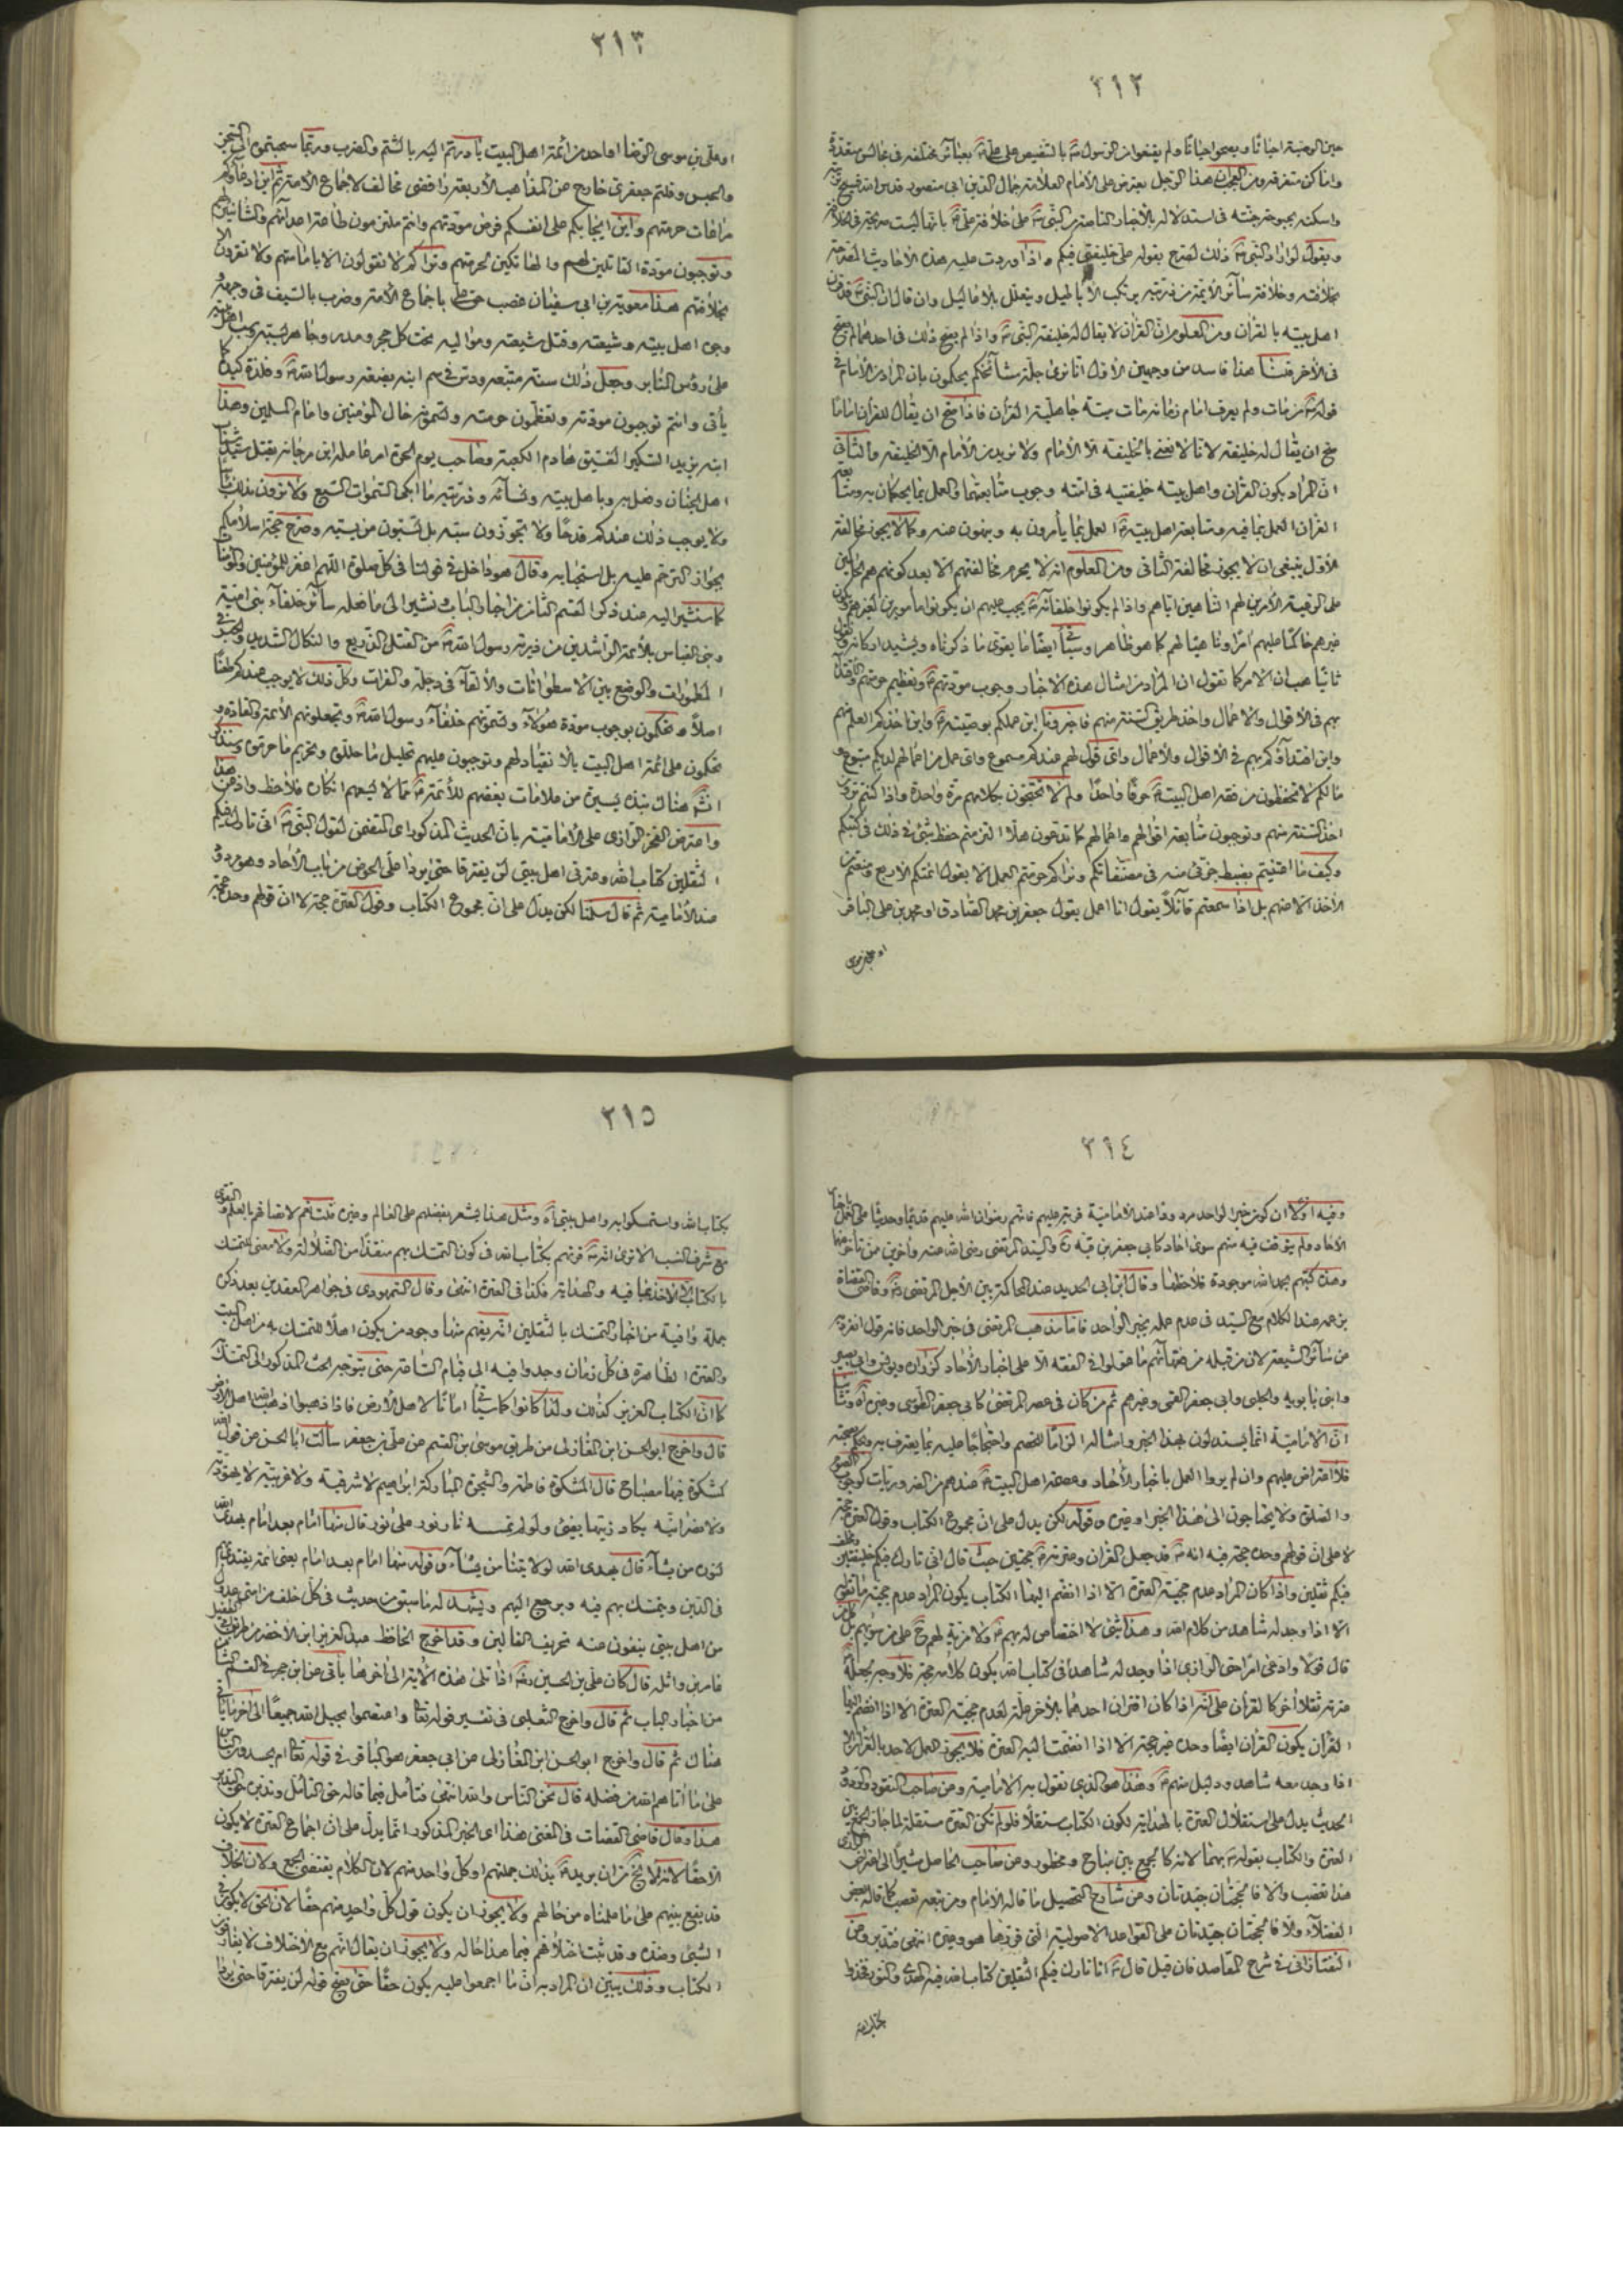 ٢١٢
حين الوصية احيانا و يصححوا احيانا ولم يقنعوا من الرسول بالتنصيص على علي بعبائر مختلفة في مجالس متعددة
واماكن متفرقة ومن العجب ان هذا الرجل يعترض على الامام العلامة جمال الدين ابي منصور قدس الله
واسكنه بحبوحة جنته في استدلاله بالاخبار الناصة من النبي على خلافة علي بانها ليست صريحة في الخلافة
ويقول لو اراد النبي ذلك لصرح بقوله علي خليفتي فيكم واذا وردت عليه هذه الاحاديث المصرحة
بخلافته وخلافة سائر الائمة من ذريته يرتكب الاباطيل ويتعلل بالاقاليل وان قال ان النبي قد قرن
اهل بيته بالقرآن ومن المعلوم ان القرآن لا يقال له خليفة النبي واذا لم يصح ذلك في احدهما لم يصح
في الآخر قلنا هذا فاسد من وجهين الاول انا نرى جلة مشائخكم يحكمون بان المراد من الامام في
قوله من مات ولم يعرف امام زمانه مات ميتة جاهلية القرآن فاذا صح ان يقال للقرآن اماما
صح ان يقال له خليفة لانا لا نعني بالخليفة الا الامام ولا نريد من الامام الا الخليفة والثاني
ان المراد بكون القرآن واهل بيته خليفتيه في امته وجوب متابعتهما والعمل بما يحكمان به ومتابعة
القرآن العمل بما فيه ومتابعة اهل بيته العمل بما يأمرون به وينهون عنه وكما لا يجوز مخالفة
الاول ينبغي ان لا يجوز مخالفة الثاني ومن المعلوم انه لا يحرم مخالفتهم الا بعد كونهم هم الحاكمين
على الرعية الآمرين لهم الناهين اياهم واذا لم يكونوا خلفائه يجب عليهم ان يكونوا مأمورين لغيرهم
غيرهم حاكما عليهم آمرا وناهيا لهم كما هو ظاهر وسيأتي ايضا ما يقوي ما ذكرناه ويشيد اركانه
ثانيا هب ان الامر كما تقول ان المراد من امثال هذه الاخبار وجوب مودتهم وتعظيم حرمتهم والاقتداء
بهم في الاقوال والاعمال واخذ طريق السنة منهم فاخبرونا اين عملكم بوصيته واين اخذكم العلم منهم
واين اقتداؤكم بهم في الاقوال والاعمال واي قول لهم عندكم مسموع واي عمل من اعمالهم لديكم متبوع
ما لكم لا تحفظون من فقه اهل البيت حرفا واحدا ولم لا تحتجون بكلامهم مرة واحدة واذا كنتم ترون
اخذ السنة منهم وتوجبون متابعة اقوالهم واعمالهم كما تدعون هلا التزمتم حفظ شيء من ذلك في كتبكم
وكيف ما اعتنيتم بضبط جزئي منه في مصنفاتكم ونراكم حرمتم العمل الا بقول ائمتكم الاربع ومنعتم
الاخذ الا عنهم بل اذا سمعتم قائلا يقول انا اعمل بقول جعفر بن محمد الصادق او محمد بن علي الباقر
او علي بن موسى
٢١٣
او علي بن موسى الرضا او احد من ائمة اهل البيت بادرتم اليه بالشتم والضرب وربما سحبتموه الى السجن
والحبس وقلتم جعفري خارج عن المذاهب الاربعة رافضي مخالف لاجماع الامة ثم اين ادعاؤكم
مراعات حرمتهم واين ايجابكم على انفسكم فرض مودتهم وانتم ملتزمون طاعة اعدائهم والشانئين لهم
وتوجبون مودة القاتلين لهم والهاتكين لحرمتهم ونراكم لا تقولون الا بامامتهم ولا تقرون الا
بخلافتهم هذا معوية بن ابي سفيان غصب حق علي باجماع الامة وضرب بالسيف في وجهه
وجوه اهل بيته وشيعته وقتل شيعته ومواليه تحت كل حجر ومدر وجاهر بسبه وسب اهل بيته
على رؤس المنابر وجعل ذلك سنة متبعة ودس في سم ابنه بضعة رسول الله وفلذة كبده كما
يأتي وانتم توجبون مودته وتعظمون حرمته وتسمونه خال المؤمنين وامام المسلمين وهذا
ابنه يزيد السكير الفسيق هادم الكعبة وصاحب يوم الحرة امر عامله ابن مرجانة بقتل سيد شباب
اهل الجنان وفعل به وباهل بيته ونسائه وذريته ما ابكى السموات السبع ولا ترون بذلك بأسا
ولا يوجب ذلك عندكم قدحا ولا تجوزون سبه بل تسبون من يسبه وصرح حجة اسلامكم
بجواز الترحم عليه بل استحبابه وقال هو داخل في قولنا في كل صلوة اللهم اغفر للمؤمنين والمؤمنات
كما سنشير اليه عند ذكر القسم الثاني من اخبار الباب ونشير الى ما فعله سائر خلفاء بني امية
وبني العباس بالائمة الراشدين من ذرية رسول الله من القتل الذريع والنكال الشديد والحبس في
المطمورات والوضع بين الاسطوانات والالقاء في دجلة والفرات وكل ذلك لا يوجب عندكم طعنا
اصلا وتحكمون بوجوب مودة هؤلاء وتسمونهم خلفاء رسول الله وتجعلونهم الائمة القادة و
تحكمون على ائمة اهل البيت بالانقياد لهم وتوجبون عليهم تحليل ما حللوه وتحريم ما حرموه
هناك نبذة يسيرة من علامات بغضهم للائمة مما لا يسعهم انكاره فلاحظ واذعن هذا
واعترض الفخر الرازي على الامامية بان الحديث المذكور اي المتضمن لقول النبي اني تارك فيكم
الثقلين كتاب الله وعترتي اهل بيتي لن يفترقا حتى يردا علي الحوض من باب الآحاد وهو مردود
عند الامامية ثم قال سلمنا لكن يدل على ان مجموع الكتاب وقول العترة حجة لا ان قولهم وحده حجة
٢١٤
وفيه اولا ان كون خبر الواحد مردودا عند الامامية فرية عليهم فانهم رضوان الله عليهم قديما وحديثا على العمل باخبار
الآحاد ولم يتوقف فيه منهم سوى آحاد كابي جعفر بن قبة والسيد المرتضى رضي الله عنه وآخرين ممن تأخر عنهما
وهذه كتبهم بحمد الله موجودة فلاحظها وقال ابن ابي الحديد عند المحاكمة بين الاجل المرتضى وقاضي القضاة
بن عمر عند الكلام مع السيد في عدم عمله بخبر الواحد فاما مذهب المرتضى في خبر الواحد فانه قول انفرد به
من سائر الشيعة لان من قبله من فقهائهم ما عولوا في الفقه الا على اخبار الآحاد كزرارة ويونس وابي بصير
وابني بابويه والحلبي وابي جعفر القمي وغيرهم ثم من كان في عصر المرتضى كابي جعفر الطوسي وغيره
ان الامامية انما يستدلون بهذا الخبر وامثاله الزاما للخصم واحتجاجا عليه بما يعترف به وبحكم بصحته
فلا اعتراض عليهم وان لم يروا العمل باخبار الآحاد وعصمة اهل البيت عندهم من الضروريات كوجوب الصوم
والصلوة ولا يحتاجون الى هذا الخبر او غيره وقوله لكن يدل على ان مجموع الكتاب وقول العترة حجة
لا على ان قولهم وحده حجة فيه انه قد جعل القرآن وعترته حجتين حيث قال اني تارك فيكم خليفتين
فيكم ثقلين واذا كان المراد عدم حجية العترة الا اذا انضم اليها الكتاب يكون المراد عدم حجية ما تقول
الا اذا وجد له شاهد من كلام الله وهذا شيء لا اختصاص له بهم ولا مزية لهم على من سواهم
قال قولا وادعى امرا حتى الرازي اذا وجد له شاهد في كتاب الله يكون كلامه حجة فلا وجه لجعله
عترته ثقلا آخر كالقرآن على انه اذا كان اقتران احدهما بالآخر علة لعدم حجية العترة الا اذا انضم اليها
القرآن يكون القرآن ايضا وحده غير حجة الا اذا انضمت اليه العترة فلا يجوز العمل لاحد بالقرآن الا
اذا وجد معه شاهد ودليل منهم وهذا هو الذي نقول به الامامية وعن صاحب النقود والردود
الحديث يدل على استقلال العترة بالهداية لكون الكتاب مستقلا فلو لم تكن العترة مستقلة لما جاز
العترة والكتاب بقوله بهما لانه كالجمع بين مباح ومحظور وعن صاحب الحاصل مشيرا الى اعتراض
هذا تعصب والا فالحجتان جيدتان وعن شارح التحصيل ما قاله الامام ومن تبعه تعصب كما قاله بعض
الفضلاء والا فالحجتان جيدتان على القواعد الاصولية التي قررها هو وغيره انتهى فتدبر وعن
التفتازاني في شرح المقاصد فان قيل قال انا تارك فيكم الثقلين كتاب الله فيه الهدى والنور فخذوا
بكتاب الله
٢١٥
بكتاب الله واستمسكوا به واهل بيتي ومثل هذا يشعر بفضلهم على العالم وغيره قلت نعم لاتصافهم بالعلم والتقوى
مع شرف النسب الا ترى انه قرنهم بكتاب الله في كون التمسك بهم منقذا من الضلالة ولا معنى للتمسك
بالكتاب الا الاخذ بما فيه والهداية فكذا في العترة انتهى وقال السمهودي في جواهر العقدين بعد ذكر
جملة وافية من اخبار التمسك بالثقلين انه يفهم منها وجود من يكون اهلا للتمسك به من اهل البيت
والعترة الطاهرة في كل زمان وجدوا فيه الى قيام الساعة حتى يتوجه الحث المذكور الى التمسك
كما ان الكتاب العزيز كذلك ولهذا كانوا كما سيأتي امانا لاهل الارض فاذا ذهبوا ذهب اهل الارض
قال واخرج ابو الحسن ابن المغازلي من طريق موسى بن القسم عن علي بن جعفر سألت ابا الحسن عن قول الله
كمشكوة فيها مصباح قال المشكوة فاطمة والشجرة المباركة ابراهيم لا شرقية ولا غربية لا يهودية
ولا نصرانية يكاد زيتها يضيء ولو لم تمسسه نار نور على نور قال منها امام بعد امام يهدي الله
لنوره من يشاء قال يهدي الله لولايتنا من يشاء وقوله منها امام بعد امام يعني ائمة يقتدى بهم
في الدين ويتمسك بهم فيه ويرجع اليهم ويشهد له ما سبق من حديث في كل خلف من امتي عدول
من اهل بيتي ينفون عنه تحريف الغالين وقد اخرج الحافظ عبد العزيز ابن الاخضر من طريق ابي الطفيل
عامر بن واثلة قال كان علي بن الحسين اذا تلى هذه الآية الى آخرها يأتي عن ابن حجر في القسم الثاني
من اخبار الباب ثم قال واخرج الثعلبي في تفسير قوله تعالى واعتصموا بحبل الله جميعا الى آخر ما يأتي
هناك ثم قال واخرج ابو الحسن ابن المغازلي عن ابي جعفر هو الباقر في قوله تعالى ام يحسدون الناس
على ما آتاهم الله من فضله قال نحن الناس والله انتهى فتأمل فيما قاله حق التأمل وتدبر حق التدبر
هذا وقال قاضي القضات في المغني هذا اي الخبر المذكور انما يدل على ان اجماع العترة لا يكون
الا حقا لانه لا يخ من ان يريد بذلك جملتهم او كل واحد منهم لان الكلام يقتضي الجمع ولان الخلاف
قد يقع بينهم على ما علمناه من حالهم ولا يجوز ان يكون قول كل واحد منهم حقا لان الحق لا يكون في
الشيء وضده وقد ثبت اختلافهم فيما هذا حاله ولا يجوز ان يقال انهم مع الاختلاف لا يفارقون
الكتاب وذلك يبين ان المراد به ان ما اجمعوا عليه يكون حقا حتى يصح قوله لن يفترقا حتى يردا